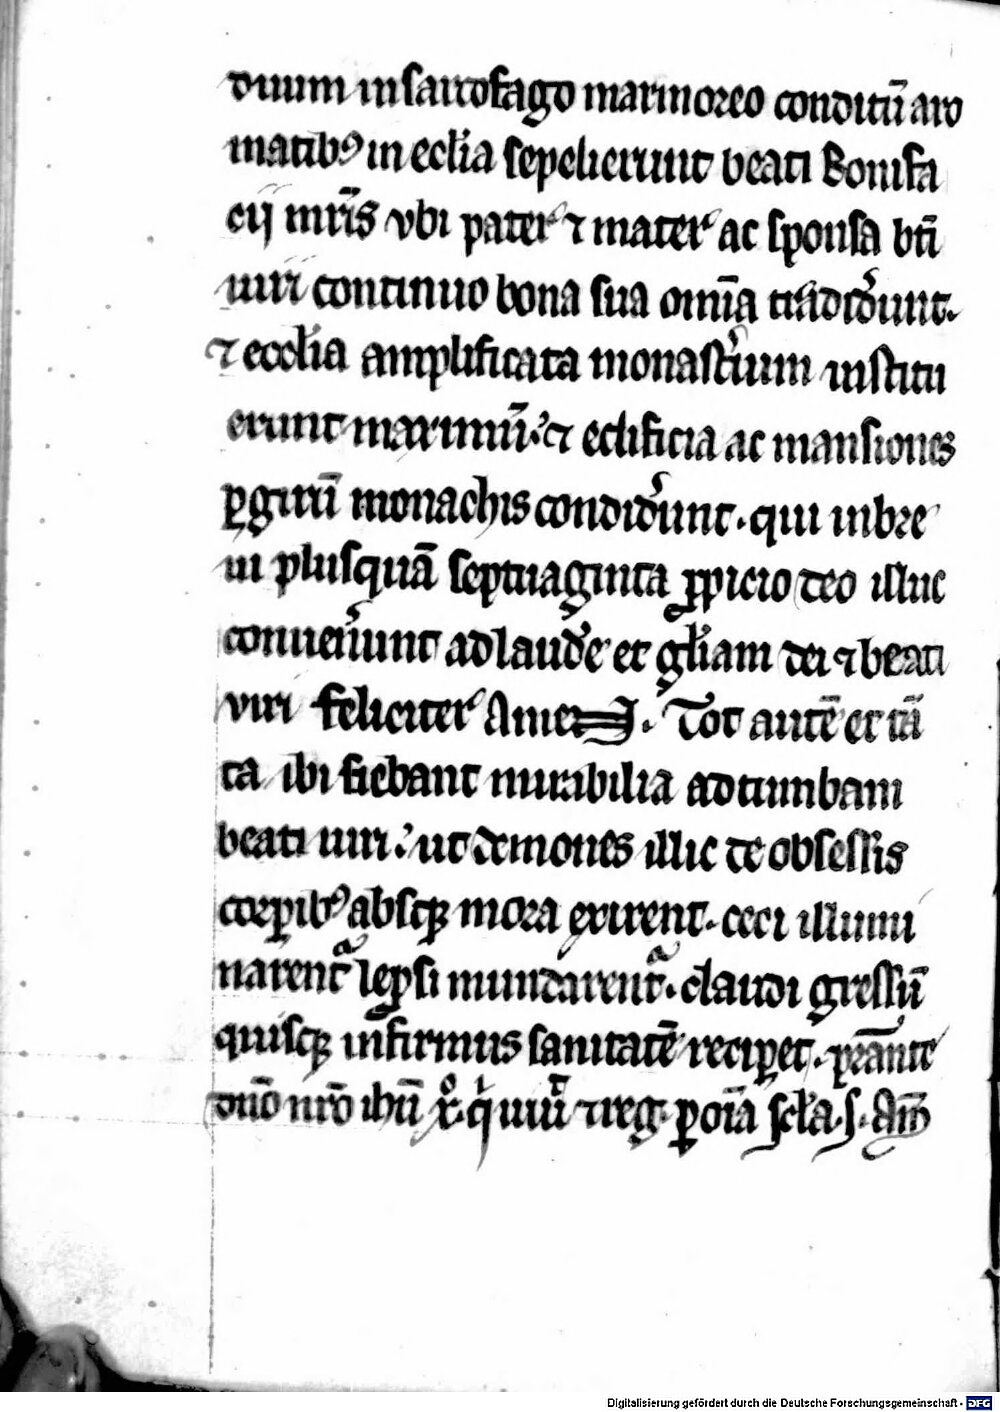 diuum in sarcofago marmoreo conditū aro
matibꝰ in ecl̄ia sepelierunt beati Bonifa
cij mr̄is vbi pater ⁊ mater ac sponsa bt̄i
uiri continuo bona sua om̄ia tradid̾unt.
⁊ eccl̄ia amplificata monast̾ium institu
erunt maximū. ⁊ edificia ac mansiones
ꝑ girū monachis condid̾unt. qui in bre
ui plusquā septuaginta ꝓpicio deo illuc
conuen̾unt ad laudē et gl̄iam dei ⁊ beati
viri feliciter Amen. Tot autē et tā
ta ibi fiebant mirabilia ad tumbam
beati uiri. ut demones illic de obsessis
corꝑibꝰ absqꝫ mora exirent. ceci illumi
narent᷑ leꝓsi mundarent᷑. claudi gressū
quisqꝫ infirmus sanitatē reciꝑet. p̄stante
dn̄o nr̄o ihū xͦ. qͥ uiuᵗ ⁊ reg. ꝑ oīa scl̄a. s. Am̄